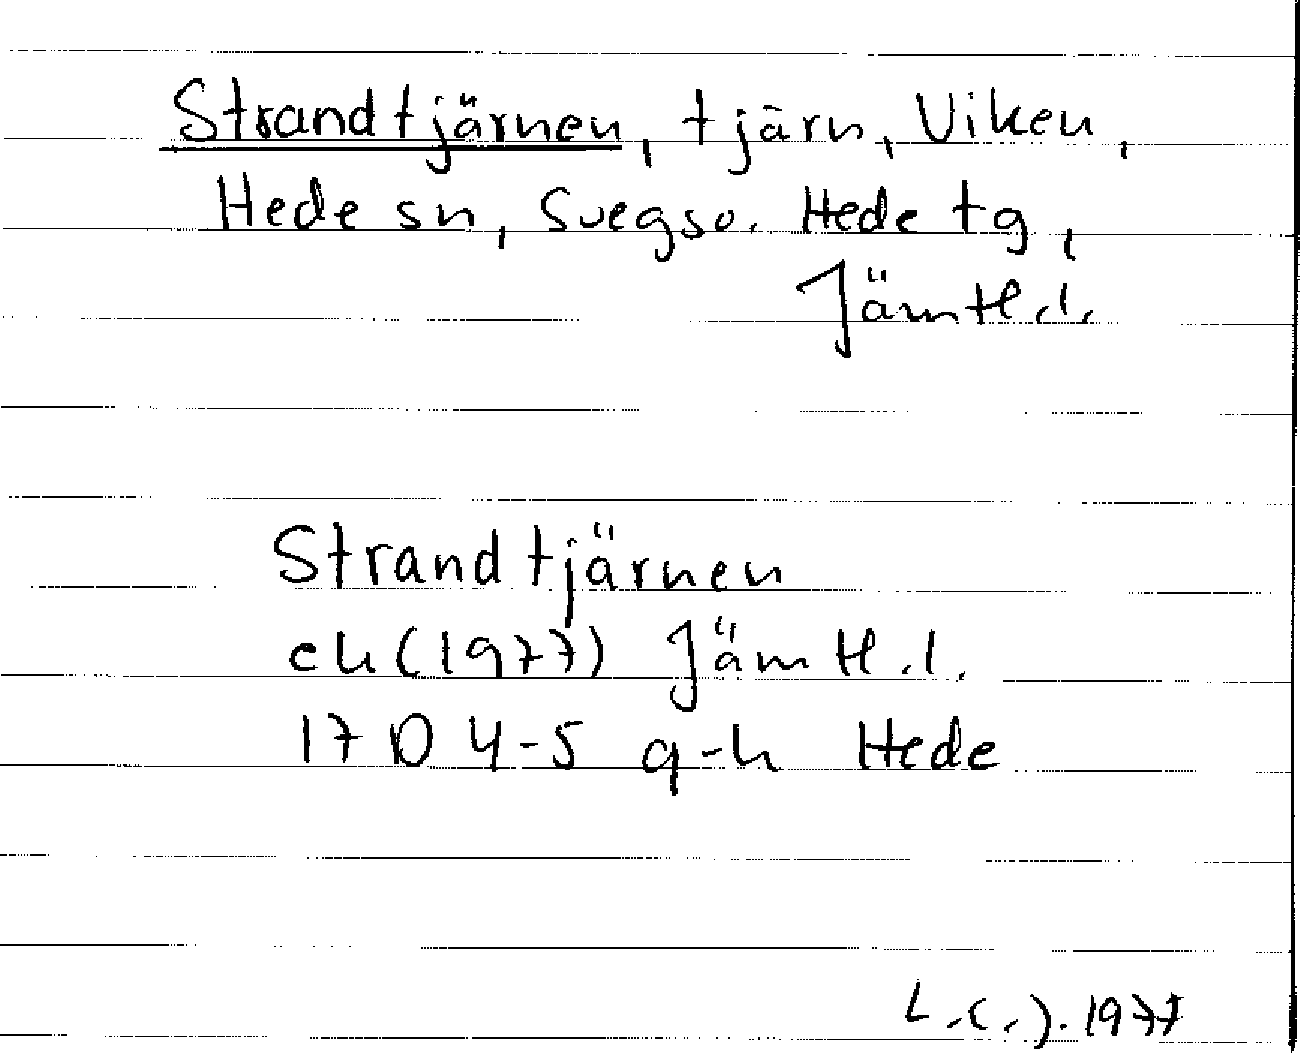 Strandtjärnen, tjärn, Viken,
Hede sn, Svegs o. Hede tg,
Jämtl.l.
Strandtjärnen
ek (1977) Jämtl.l.
17 D 4-5 g-h Hede
1977